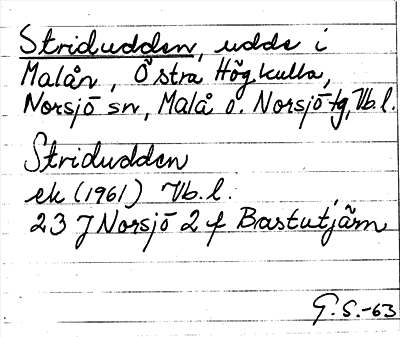 Stridudden, udde i
Malån, Östra Högkulla,
Norsjö sn, Malå o. Norsjö tg, Vb.l.
Stridudden
ek (1961) Vb.l.
23 J Norsjö 2 f Bastutjärn
G.S.-63